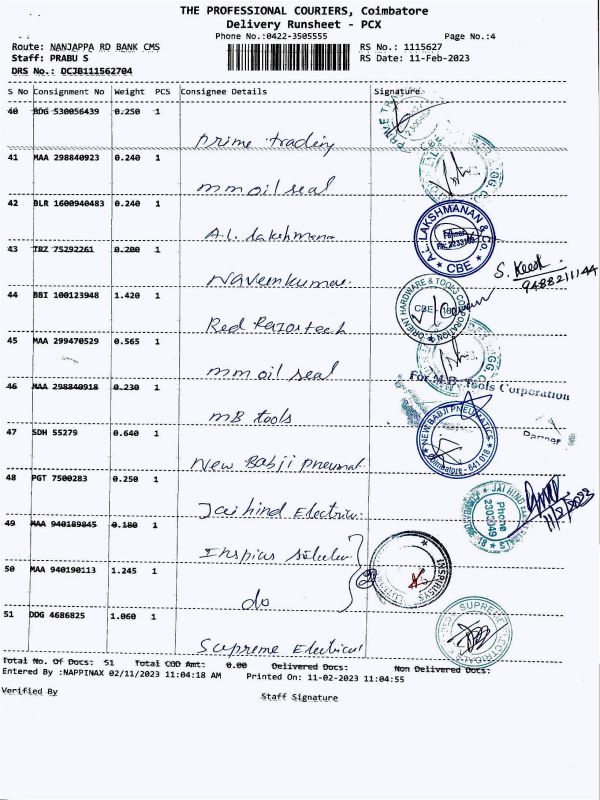 THE PROFESSIONAL COURIERS, Coimbatore
Delivery Runsheet - PCX
Phone No.:0422-3505555 Page No.:4
Route: NANJAPPA RD BANK CMS RS No.: 1115627
Staff: PRABU S RS Date: 11-Feb-2023
DRS No.: DCJB111562704
S No Consignment No Weight PCS Consignee Details Signature
40 BDG 530056439 0.250 1
Prime trading
41 MAA 298840923 0.240 1
mm oil seal
42 BLR 1600940483 0.240 1
A.L. Lakshmana
A.L. LAKSHMANAN & Co. CBE
43 TRZ 75292261 0.200 1
Naveenkumar.
9488211144
44 BBI 100123948 1.420 1
Red Razortech
ORIENT HARDWARE & TOOLS CORPORATION CBE
45 MAA 299470529 0.565 1
mm oil seal
For M.B. Tools Corporation
46 MAA 298840918 0.230 1
MB tools
Partner
47 SDH 55279 0.640 1
New Babji pneumat
NEW BABJI PNEUMATICS Coimbatore - 641 018
48 PGT 7500283 0.250 1
Jaihind Electrical
Phone 2303049
11/2/2023
49 MAA 940189845 0.180 1
50 MAA 940190113 1.245 1
do
51 DDG 4686825 1.060 1
Supreme Electrical
Total No. Of Docs: 51 Total COD Amt: 0.00 Delivered Docs: Non Delivered Docs:
Entered By :NAPPINAX 02/11/2023 11:04:18 AM Printed On: 11-02-2023 11:04:55
Verified By Staff Signature